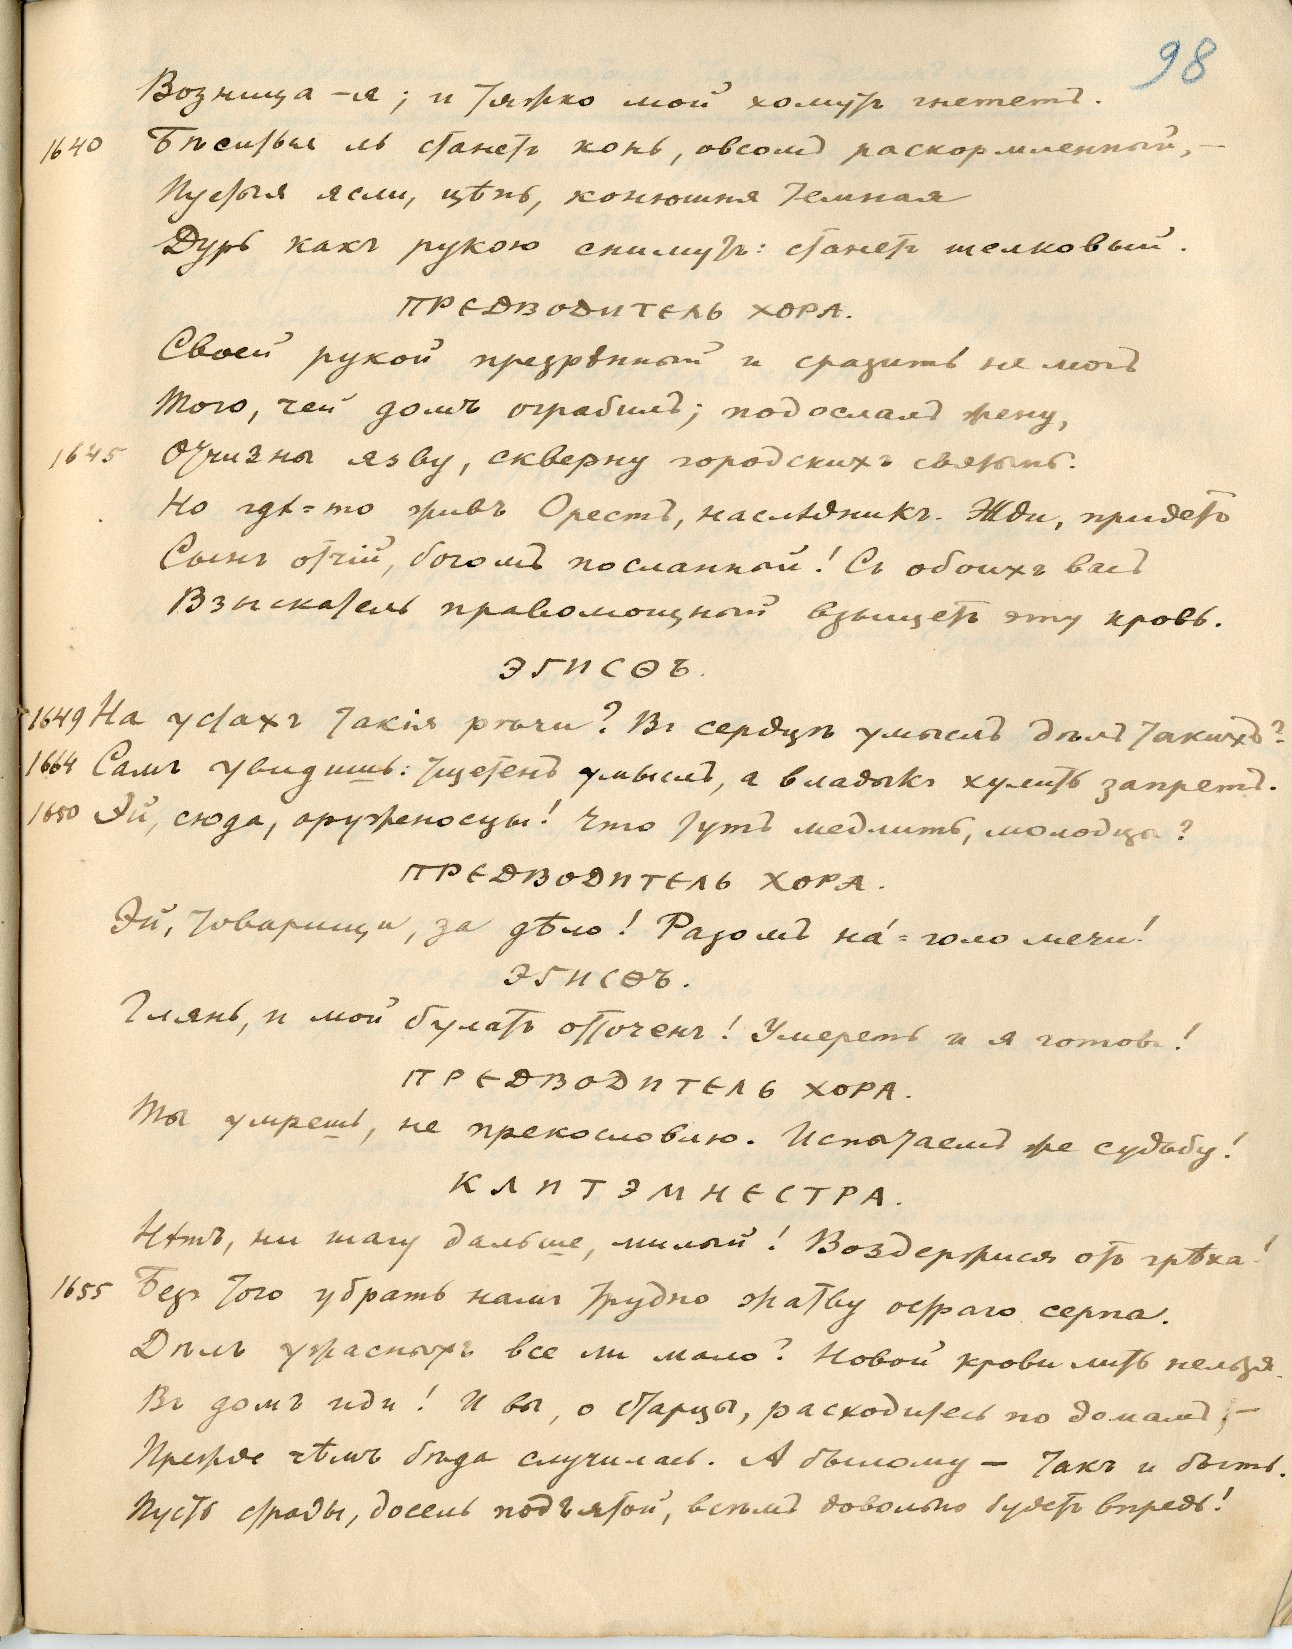 98
Возница-я; и тяжко мой хомутъ гнететъ.
1640 Бѣситься ль станетъ конь, овсомъ раскормленный, —
Пустыя ясли, цѣпь, конюшня темная
Дурь какъ рукою снимутъ: станетъ шелковый.
ПРЕДВОДИТЕЛЬ ХОРА.
Своей рукой презрѣнный и сразить не могъ
Того, чей домъ ограбилъ; подослалъ жену,
1645 Отчизны язву, скверну городскихъ святынь.
Но гдѣ-то живъ Орестъ, наслѣдникъ. Жди, придетъ
Сынъ отчій, богомъ посланный! Съ обоихъ васъ
Взыскатель правомощный взыщетъ эту кровь.
ЭГИСѲЪ.
1649 На устахъ такія рѣчи? Въ сердцѣ умыслъ дѣлъ такихъ?
1664 Самъ увидишь: тщетенъ умыслъ, а владыкъ хулить запретъ.
1650 Эй, сюда, оруженосцы! Что тутъ медлить, молодцы?
ПРЕДВОДИТЕЛЬ ХОРА.
Эй, товарищи, за дѣло! Разомъ на́-голо мечи!
ЭГИСѲЪ.
Глянь, и мой булатъ отточенъ! Умереть и я готовъ!
ПРЕДВОДИТЕЛЬ ХОРА.
Ты умрешь, не прекословлю. Испытаемъ же судьбу!
КЛИТЭМНЕСТРА.
Нѣтъ, ни шагу дальше, милый! Воздержися отъ грѣха!
1655 Безъ того убрать намъ трудно жатву остраго серпа.
Дѣлъ ужасныхъ все ли мало? Новой крови лить нельзя.
Въ домъ иди! И вы, о старцы, расходитесь по домамъ, —
Прежде чѣмъ бѣда случилась. А былому — такъ и быть.
Пусть страды, досель подъятой, всѣмъ довольно будетъ впредь!